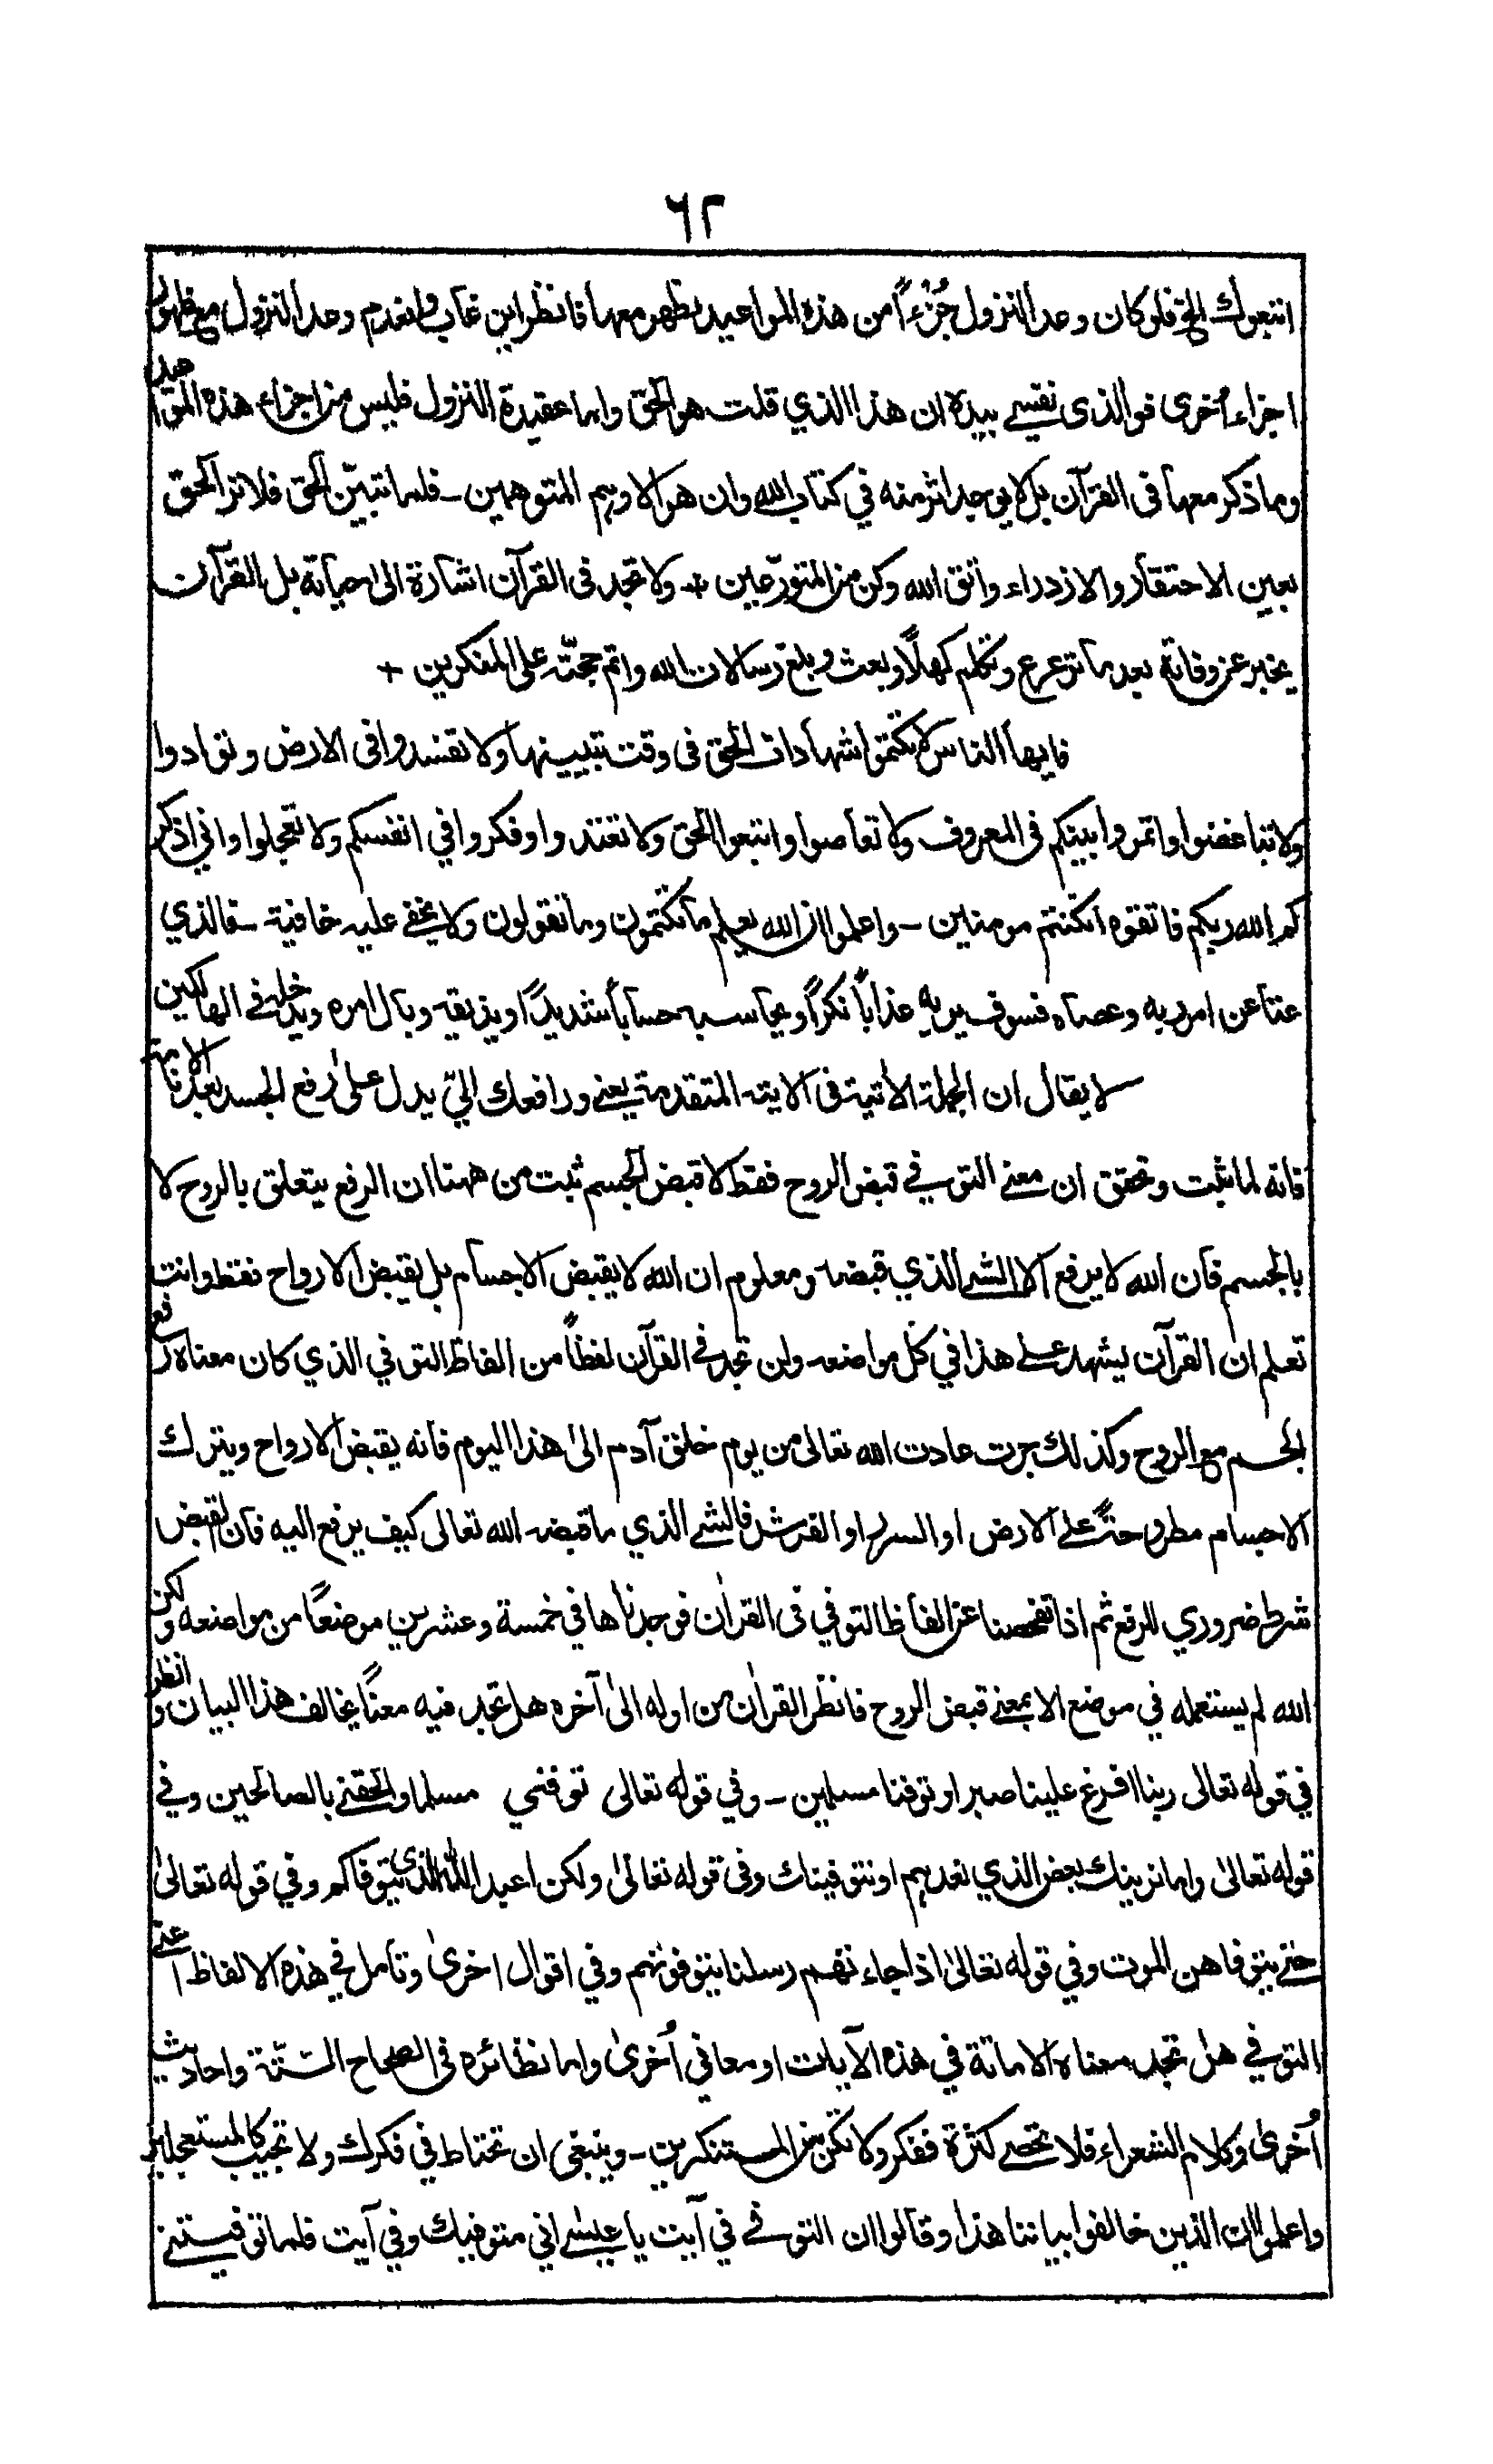 ٦٢
اتبعوك الخ فلو كان وعد النزول جُزْءًا من هذه المواعيد لظهر معها فانظر اين غاب وانعدم وعد النزول مع ظهور
اجزاء أخرى فوالذى نفسي بيده ان هذا الذي قلت هو الحق واما عقيدة النزول فليس من اجزاء هذه المواعيد
وما ذكر معها فى القرآن بل لا يوجد اثر منه في كتاب الله وان هو الا وهم المتوهمين ـ فلما تبيّن الحق فلا تر الحق
بعين الاحتقار والازدراء واتق الله وكن من المتورّعين + ولا تجد فى القرآن اشارة الى حياته بل القرآن
يخبر عن وفاته بعد ما ترعرع وتكلم كهلاً وبعث وبلغ رسالات الله واتم حجتّه على المنكرين +
فايها الناس لا تكتموا شهادات الحق فى وقت تبيينها ولا تفسدوا فى الارض وتوادوا
ولا تباغضوا واتمروا بينكم فى المعروف ولا تعاصوا واتبعوا الحق ولا تعتدوا وفكروا في انفسكم ولا تعجلوا واني اذكر
كم الله ربكم فاتقوه ان كنتم مومنين ـ واعلموا ان الله يعلم ما تكتمون وما تقولون ولا يخفى عليه خافية ـ فالذي
عتا عن امر ربه وعصاه فسوف يريه عذاباً نكراً ويحاسبه حساباً شديدًا ويذيقه وبال امره ويدخله في الهالكين
لا يقال ان الجملة الآتية فى الاية المتقدمة يعني ورافعك اليّ يدل على رفع الجسد بعد الاماتة
فانه لما ثبت وتحقق ان معنى التوفي قبض الروح فقط لا قبض الجسم ثبت من ههنا ان الرفع يتعلق بالروح لا
بالجسم فان الله لا يرفع الا الشي الذي قبضه ومعلوم ان الله لا يقبض الاجسام بل يقبض الارواح فقط وانت
تعلم ان القرآن يشهد على هذا في كل مواضعه ولن تجد في القرآن لفظاً من الفاظ التوفي الذي كان معناه رفع
الجسم مع الروح وكذلك جرت عادت الله تعالى من يوم خلق آدم الى هذا اليوم فانه يقبض الارواح ويترك
الاجسام مطروحتً على الارض او السرير او الفرش فالشي الذي ما قبضه الله تعالى كيف يرفع اليه فان القبض
شرط ضروري للرفع ثم اذا تفحصنا عن الفاظ التوفي فى القرآن فوجدناها في خمسة وعشرين موضعًا من مواضعه ولكن
الله لم يستعمله في موضع الا بمعنى قبض الروح فانظر القرآن من اوله الى آخره هل تجد فيه معنًا يخالف هذا البيان وانظر
في قوله تعالى ربنا افرغ علينا صبرا وتوفنا مسلمين ـ وفي قوله تعالى توفني مسلما والحقني بالصالحين وفي
قوله تعالى واما نرينك بعض الذي نعدهم او نتوفينك وفى قوله تعالى ولكن اعبد الله الذى يتوفاكم وفي قوله تعالى
حتى يتوفاهن الموت وفي قوله تعالى اذا جاءتهم رسلنا يتوفونهم وفي اقوال اخرى وتامل في هذه الالفاظ اعني
التوفي هل تجد معناه الاماتة في هذه الآيات او معاني أخرى واما نظائره فى الصحاح الستّة واحاديث
أخرى وكلام الشعراء فلا تحصى كثرة ففكر ولا تكن من المستنكرين ـ وينبغي ان تحتاط في فكرك ولا تجيب كالمستعجلين
واعلموا ان الذين خالفوا بياننا هذا وقالوا ان التوفي في آيت يا عيسى اني متوفيك وفي آيت فلما توفيتني